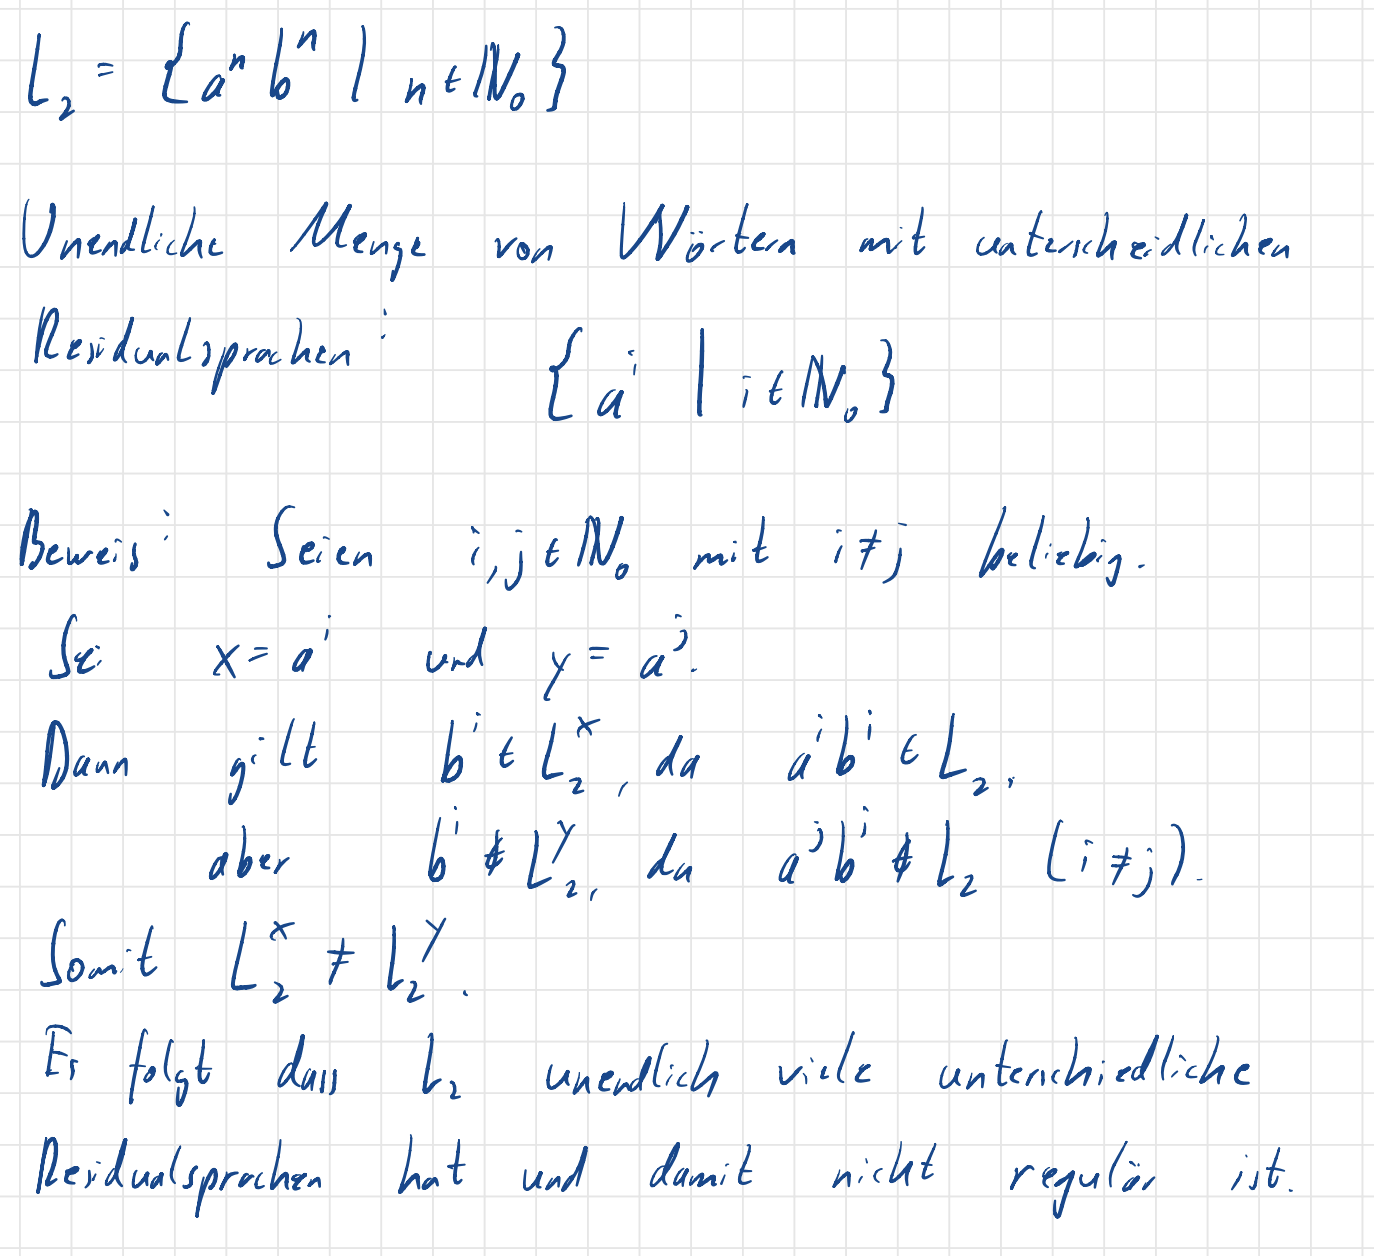 L₂ = {aⁿ bⁿ | n ∈ ℕ₀}
Unendliche Menge von Wörtern mit unterscheidlichen
Residualsprachen: {aⁱ | i ∈ ℕ₀}
Beweis: Seien i, j ∈ ℕ₀ mit i ≠ j beliebig.
Sei x = aⁱ und y = aʲ.
Dann gilt bⁱ ∈ L₂ˣ, da aⁱbⁱ ∈ L₂,
aber bⁱ ∉ L₂ʸ, da aʲbⁱ ∉ L₂ (i ≠ j).
Somit L₂ˣ ≠ L₂ʸ.
Es folgt dass L₂ unendlich viele unterschiedliche
Residualsprachen hat und damit nicht regulär ist.